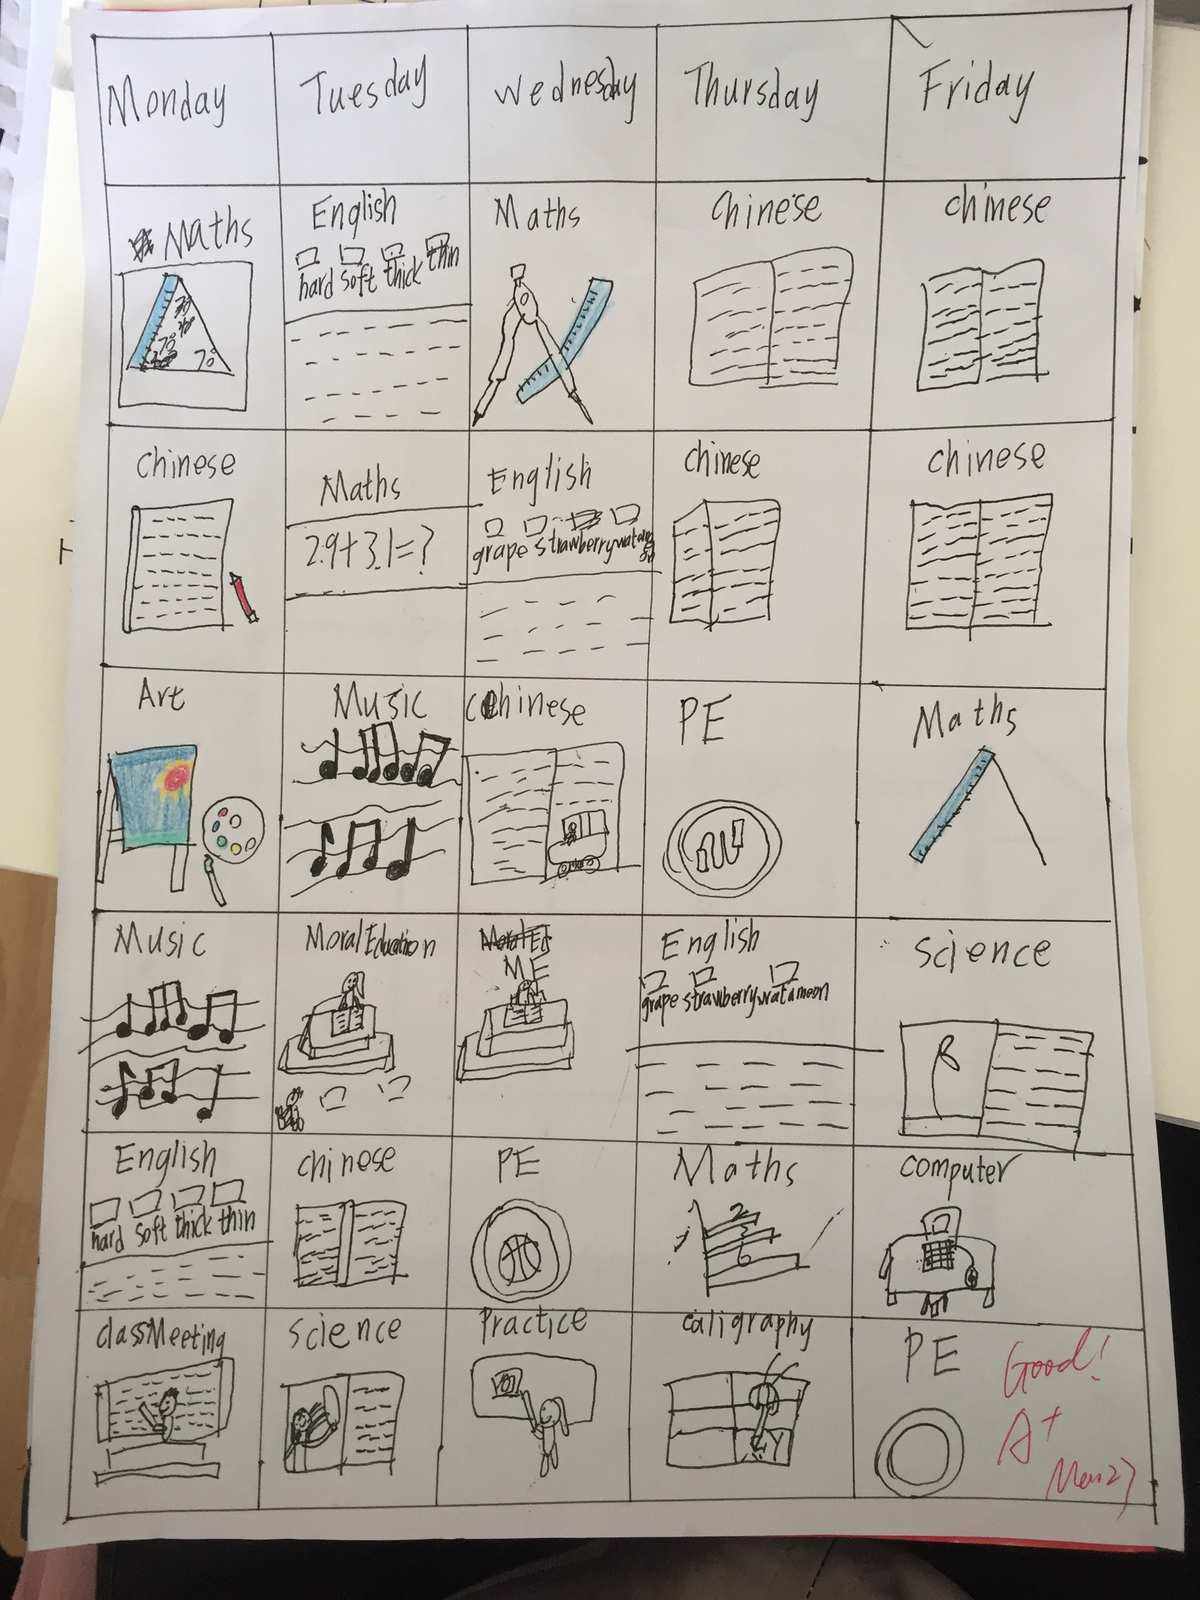 Monday Tuesday Wednesday Thursday Friday
Maths English Maths Chinese chinese
hard soft thick thin
70° 70°
chinese Maths English chinese chinese
2.9+3.1=?
grape strawberry
Art Music Chinese PE Maths
Music Moral Education ME English science
grape strawberry watameon
English chinese PE Maths computer
hard soft thick thin
2
6
classMeeting science Practice caligraphy PE
Good!
A+